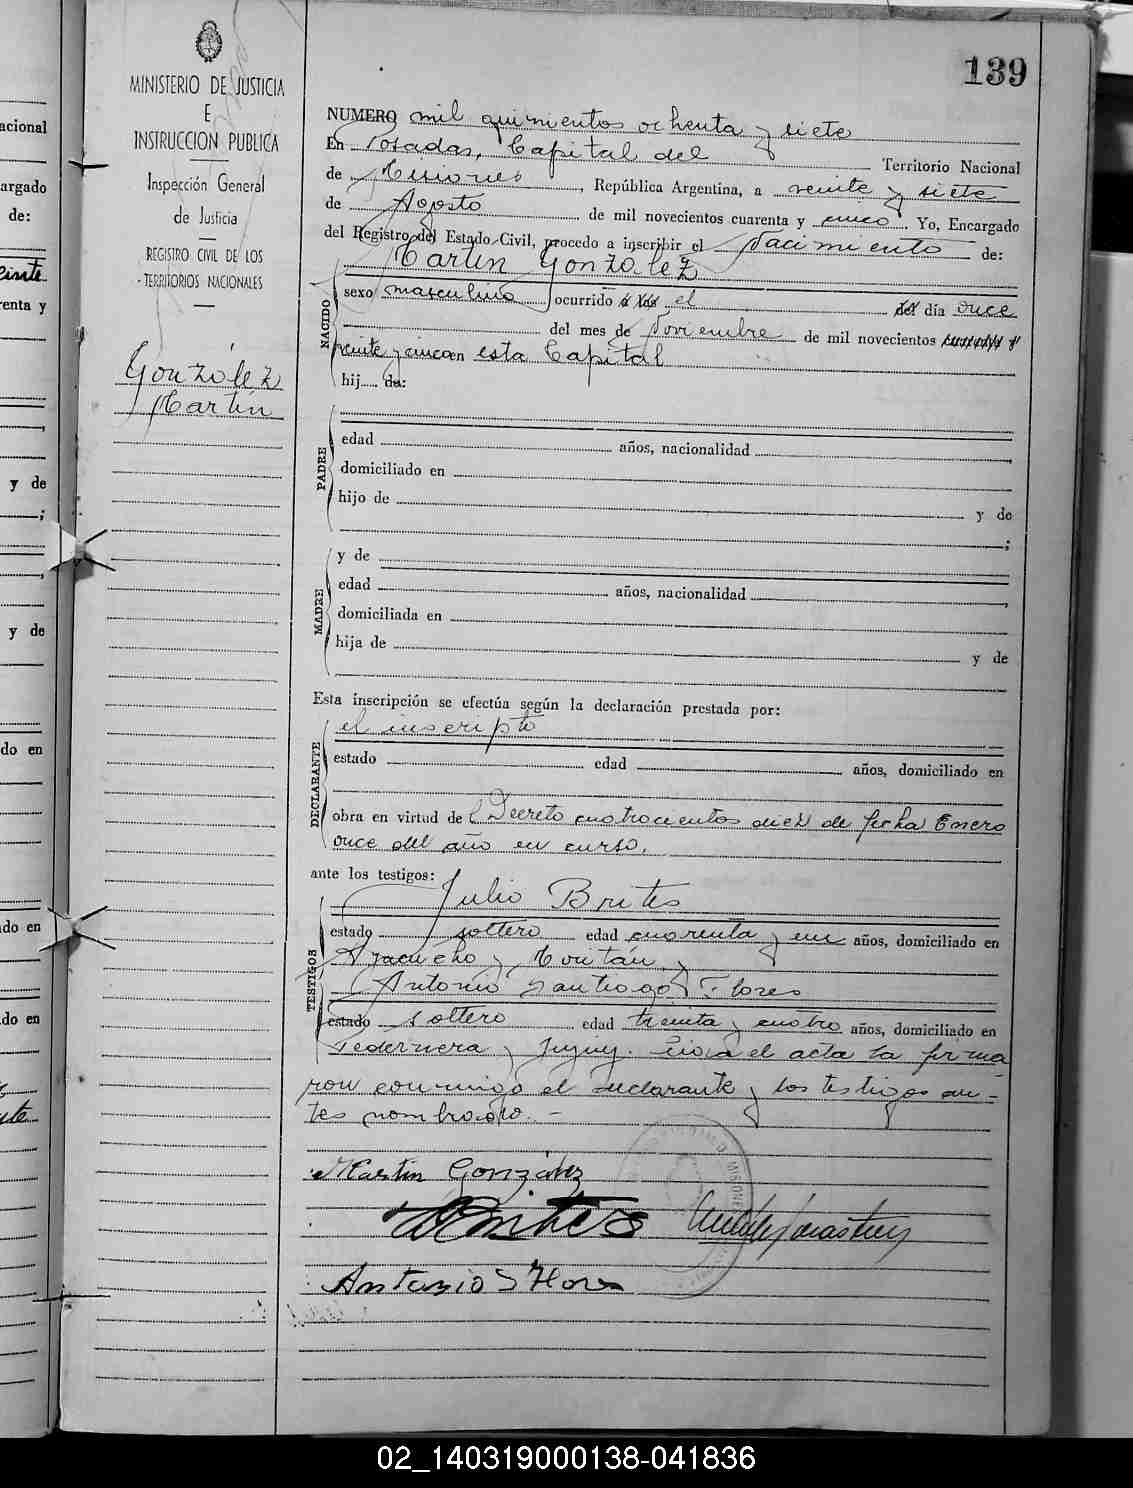 139
MINISTERIO DE JUSTICIA
E
INSTRUCCION PUBLICA
Inspección General
de Justicia
REGISTRO CIVIL DE LOS
TERRITORIOS NACIONALES
González
Martín
NUMERO mil quinientos ochenta y siete
En Posadas, Capital del Territorio Nacional
de Misiones, República Argentina, a veinte y siete
de Agosto de mil novecientos cuarenta y cinco Yo, Encargado
del Registro del Estado Civil, procedo a inscribir el Nacimiento de:
Martín González
NACIDO
sexo masculino ocurrido a las el del día once
del mes de Noviembre de mil novecientos cuarenta y
veinte y cinco en esta Capital
hij..... de:
PADRE
edad años, nacionalidad
domiciliado en
hijo de y de
;
MADRE
y de
edad años, nacionalidad
domiciliada en
hija de y de
Esta inscripción se efectúa según la declaración prestada por:
DECLARANTE
el inscripto
estado edad años, domiciliado en
obra en virtud del Decreto cuatrocientos diez de fecha Enero
once del año en curso.
ante los testigos:
TESTIGOS
Julio Brites
estado soltero edad cuarenta y un años, domiciliado en
Ayacucho y Tucumán y
Antonio Santiago Flores
estado soltero edad treinta y cuatro años, domiciliado en
Pedernera y Jujuy. Leída el acta la firma
ron conmigo el declarante y los testigos an-
tes nombrado.-
Martín González
Brites
Antonio S Flores
acional
argado
de:
einte
enta y
y de
;
y de
do en
do en
do en
02_140319000138-041836